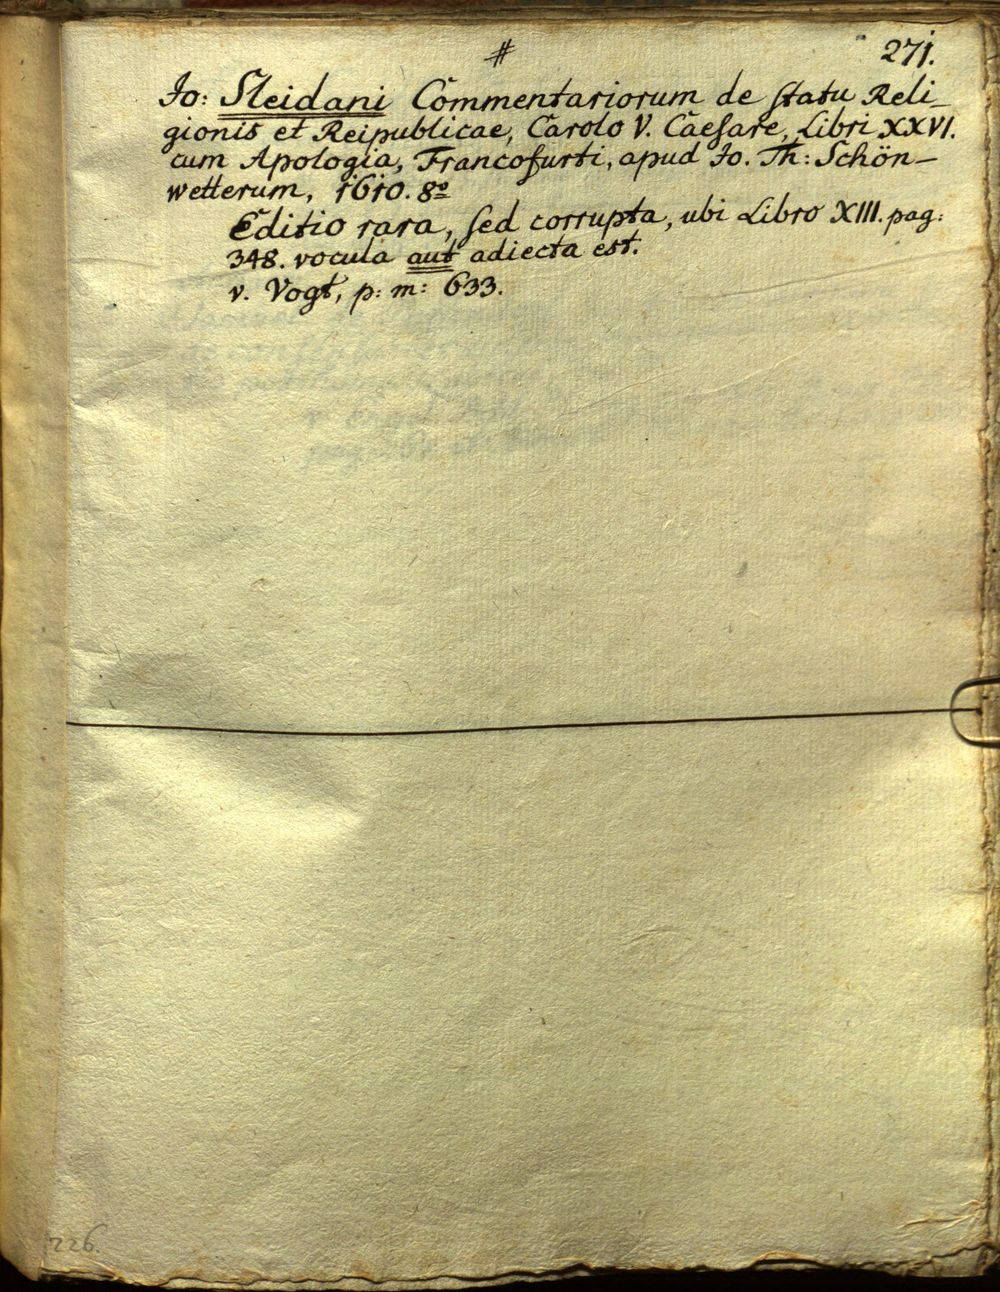 #
271.
Jo: Sleidani Commentariorum de ſtatu Reli-
gionis et Reipublicae, Carolo V. Caeſare, Libri XXVI.
cum Apologia, Francofurti, apud Jo. Th: Schön-
wetterum, 1610. 8º
Editio rara, ſed corrupta, ubi Libro XIII. pag:
348. vocula aut adiecta est.
v. Vogt, p: m: 633.
226.